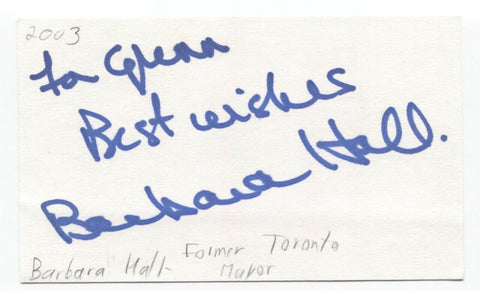 2003
To Glenn
Best wishes
Barbara Hall.
Barbara Hall - Former Toronto
Mayor